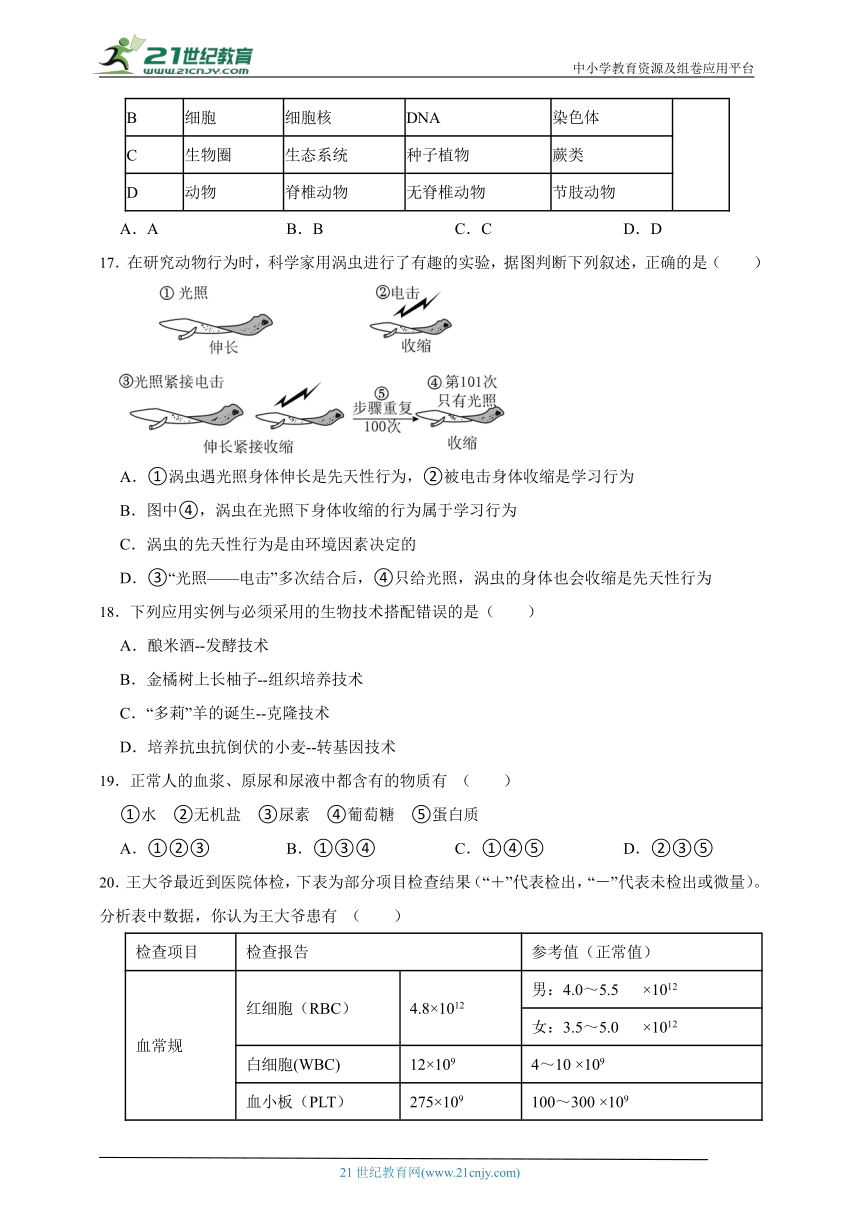 21世纪教育
www.21cnjy.com
中小学教育资源及组卷应用平台
B 细胞 细胞核 DNA 染色体
C 生物圈 生态系统 种子植物 蕨类
D 动物 脊椎动物 无脊椎动物 节肢动物
A．A B．B C．C D．D
17．在研究动物行为时，科学家用涡虫进行了有趣的实验，据图判断下列叙述，正确的是（ ）
① 光照 ②电击
伸长 收缩
③光照紧接电击 ⑤ ④ 第101次
步骤重复 只有光照
100次
伸长紧接收缩 收缩
A．①涡虫遇光照身体伸长是先天性行为，②被电击身体收缩是学习行为
B．图中④，涡虫在光照下身体收缩的行为属于学习行为
C．涡虫的先天性行为是由环境因素决定的
D．③“光照——电击”多次结合后，④只给光照，涡虫的身体也会收缩是先天性行为
18．下列应用实例与必须采用的生物技术搭配错误的是（ ）
A．酿米酒--发酵技术
B．金橘树上长柚子--组织培养技术
C．“多莉”羊的诞生--克隆技术
D．培养抗虫抗倒伏的小麦--转基因技术
19．正常人的血浆、原尿和尿液中都含有的物质有 （ ）
①水 ②无机盐 ③尿素 ④葡萄糖 ⑤蛋白质
A．①②③ B．①③④ C．①④⑤ D．②③⑤
20．王大爷最近到医院体检，下表为部分项目检查结果（“＋”代表检出，“－”代表未检出或微量）。
分析表中数据，你认为王大爷患有 （ ）
检查项目 检查报告 参考值（正常值）
血常规 红细胞（RBC） 4.8×10¹² 男：4.0～5.5 ×10¹²
女：3.5～5.0 ×10¹²
白细胞(WBC) 12×10⁹ 4～10 ×10⁹
血小板（PLT） 275×10⁹ 100～300 ×10⁹
21世纪教育网(www.21cnjy.com)